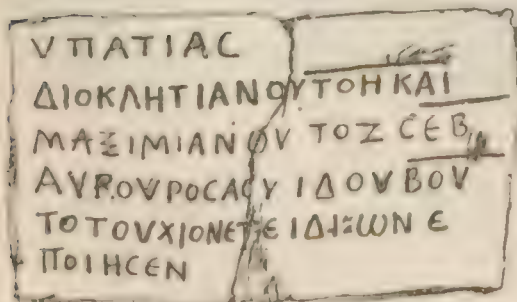 VΠΑΤΙΑC
ΔΙΟΚΛΗΤΙΑΝΟVΤΟΗΚΑΙ
ΜΑΞΙΜΙΑΝΟV ΤΟΖ CЄΒ
ΑVΡΟVΡΟCΑΟV ΙΔΟVΒΟV
ΤΟΤΟVΧΙΟΝЄΤЄΙΔΙΞωΝЄ
ΠΟΙΗCЄΝ